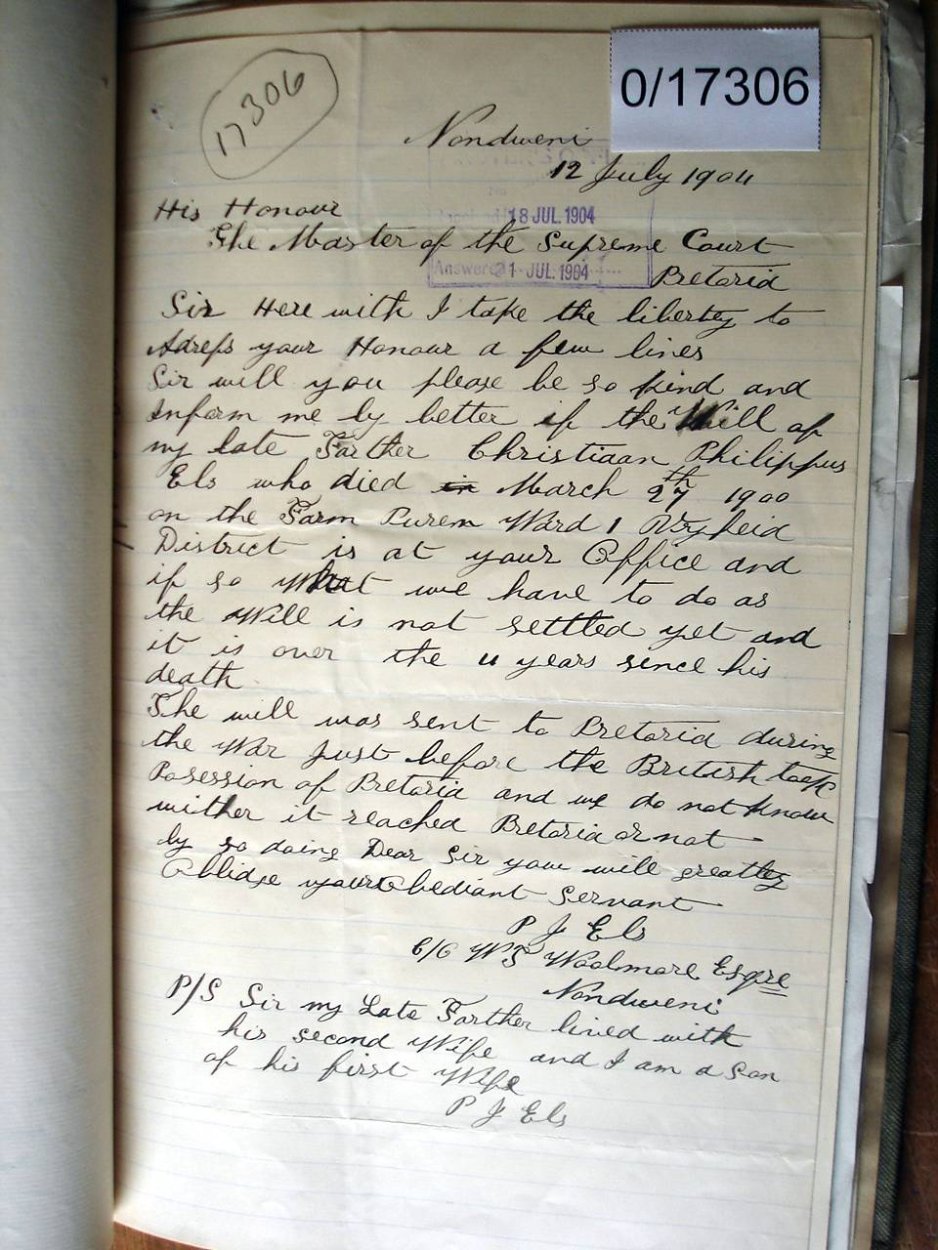 17306
0/17306
Nondweni
12 July 1904
18 JUL. 1904
Answered 21 JUL. 1904
His Honour
The Master of the Supreme Court
Pretoria
Sir Here with I take the liberty to
Adress your Honour a few lines
Sir will you please be so kind and
Inform me by letter if the Will of
my late Farther Christiaan Philippus
Els who died in March 27th 1900
on the Farm Purem Ward 1 Vryheid
District is at your Office and
if so What we have to do as
the Will is not settled yet and
it is over the 4 years since his
death
The will was sent to Pretoria during
the War just before the British took
Posession of Pretoria and we do not know
wither it reached Pretoria or not
by so doing Dear Sir you will greatley
Oblidge your Obediant Servant
P J Els
C/O W S Woolmore Esqre
Nondweni
P/S Sir my Late Farther lived with
his second Wife and I am a son
of his first Wife
P J Els